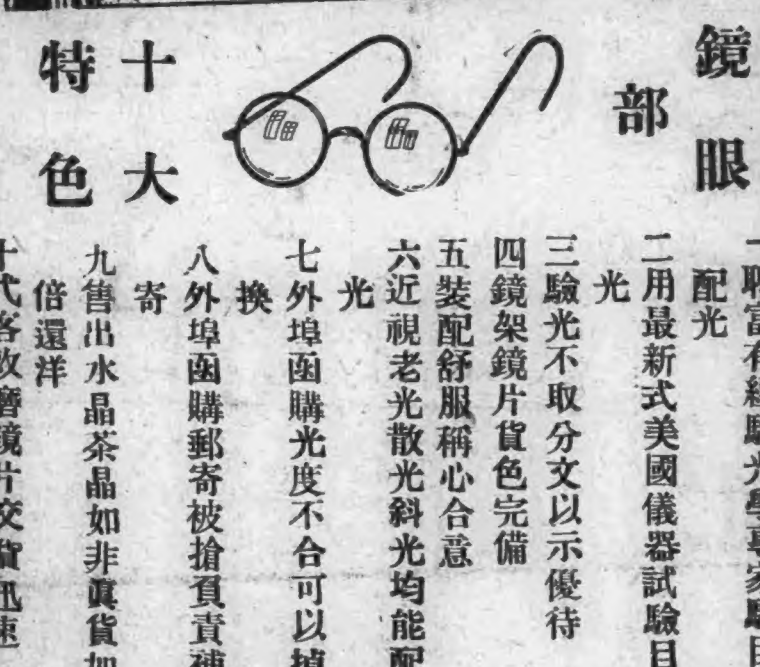 眼鏡部
十大特色
一聘富有經驗光學專家驗目
配光
二用最新式美國儀器試驗目
光
三驗光不取分文以示優待
四鏡架鏡片貨色完備
五裝配舒服稱心合意
六近視老光散光斜光均能配
光
七外埠函購光度不合可以掉
換
八外埠函購郵寄被搶負責補
寄
九售出水晶茶晶如非眞貨加
倍還洋
十代客改磨鏡片交貨迅速